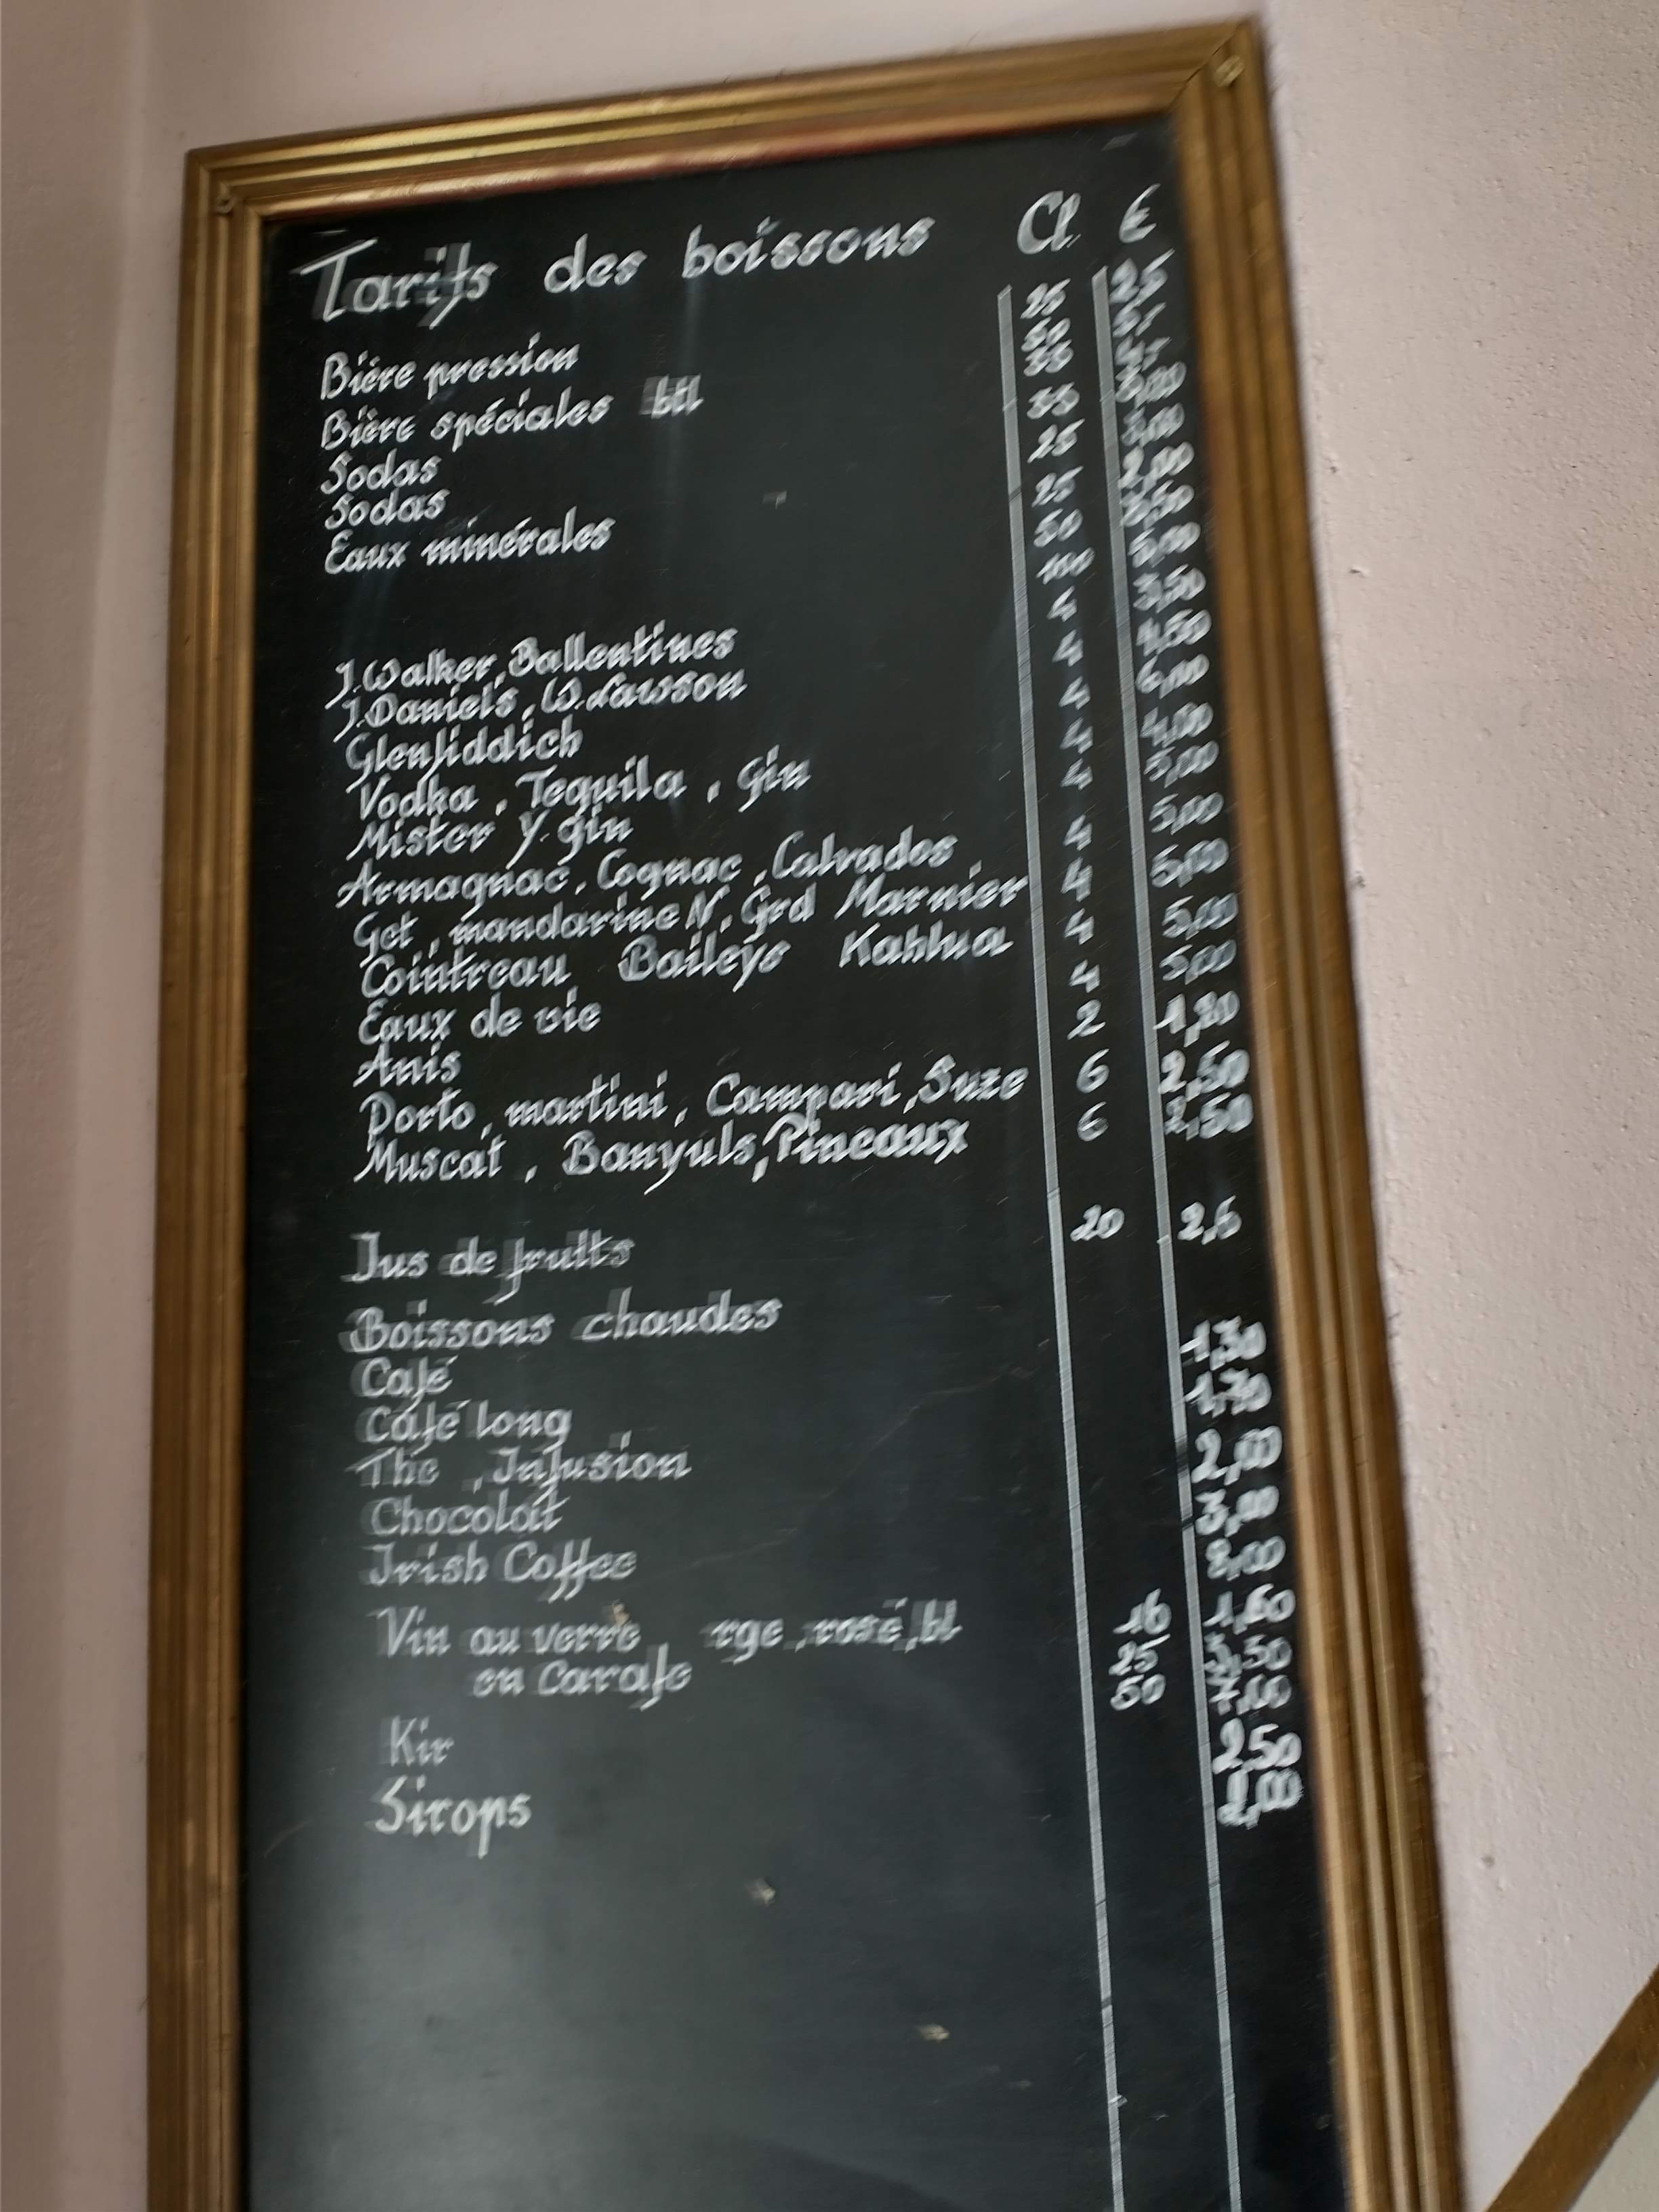 Tarifs des boissons Cl €
Bière pression 25 2,5
50
Bière spéciales btl 33
Sodas 33 3,00
Sodas 25 3,00
Eaux minérales 25 2,00
50 3,50
100 5,00
J.Walker, Ballentines 4 3,50
J.Daniel's, W.Lawson 4 4,50
Glenfiddich 4 6,00
Vodka, Tequila, Gin 4 4,00
Mister Y gin 4 5,00
Armagnac, Cognac, Calvados 4 5,00
Get, mandarine N, Grd Marnier 4 5,00
Cointreau Baileys Kahlua 4 5,00
Eaux de vie 4 5,00
Anis 2 1,80
Porto, martini, Campari, Suze 6 2,50
Muscat, Banyuls, Pineaux 6 2,50
Jus de fruits 20 2,5
Boissons chaudes
Café 1,30
Café long 1,70
Thé, Infusion 2,00
Chocolat
Irish Coffee
Vin au verre rge, rosé, bl 16 1,60
en Carafe 25 3,50
50
Kir 2,50
Sirops 2,00